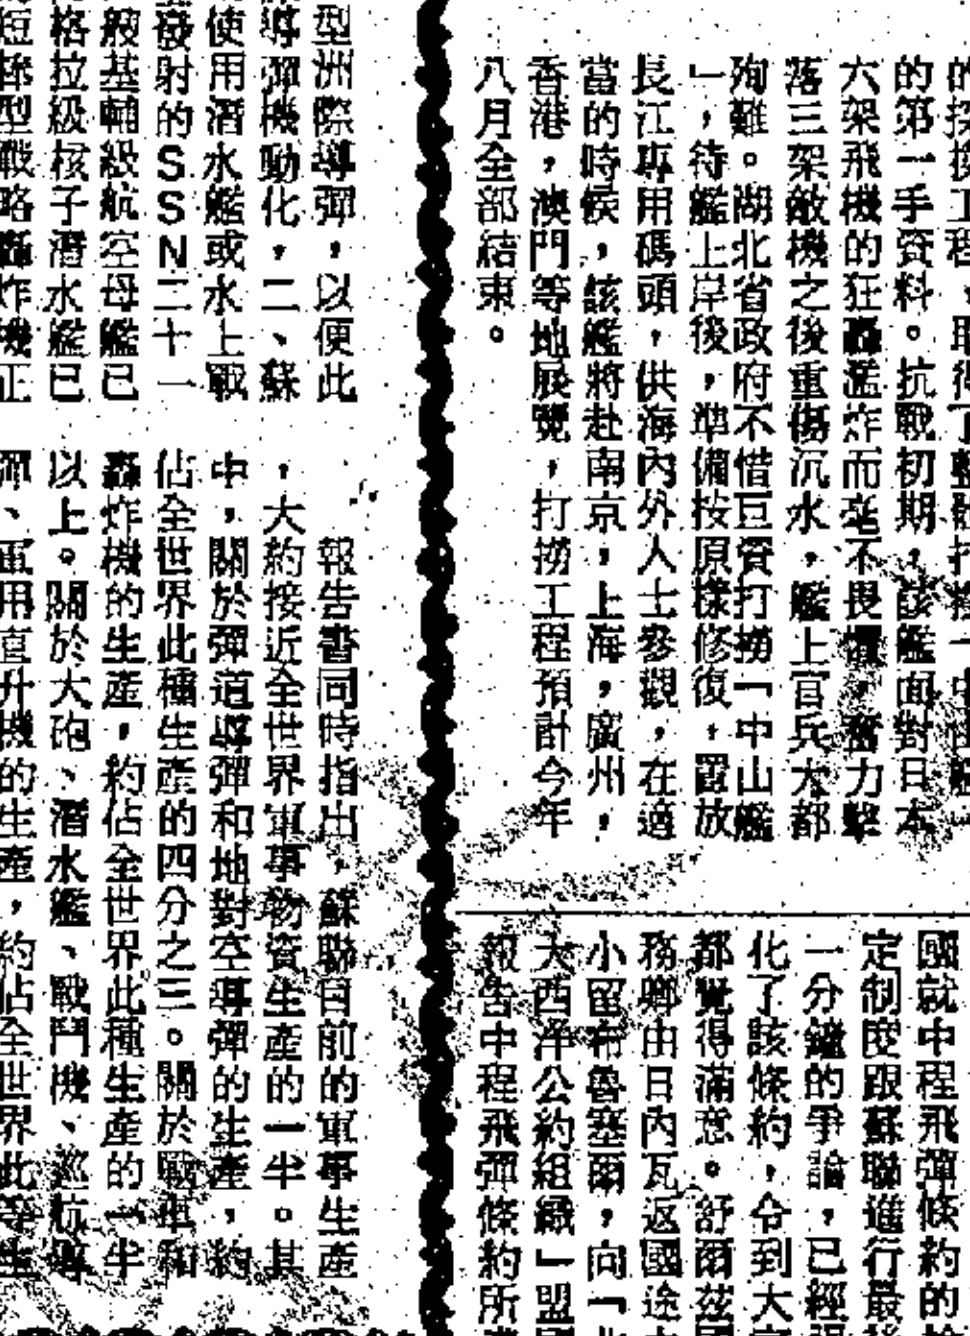 的探摸工程，取得了整體打撈「中山艦
的第一手資料。抗戰初期，該艦面對日本
六架飛機的狂轟濫炸而毫不畏懼，奮力擊
落三架敵機之後重傷沉水，艦上官兵大都
殉難。湖北省政府不惜巨資打撈「中山艦
」，待艦上岸後，準備按原樣修復，置放
長江專用碼頭，供海內外人士參觀，在適
當的時候，該艦將赴南京，上海，廣州，
香港，澳門等地展覽，打撈工程預計今年
八月全部結束。
國就中程飛彈條約的
定制度跟蘇聯進行最
一分鐘的爭論，已經
化了該條約，令到大
都覺得滿意。舒爾茲國
務卿由日內瓦返國途
小留布魯塞爾，向「北
大西洋公約組織」盟國
報告中程飛彈條約所
型洲際導彈，以便此
導彈機動化，二、蘇
使用潛水艦或水上戰
發射的SSN二十一
般基輔級航空母艦已
格拉級核子潛水艦已
型戰略轟炸機正
報告書同時指出，蘇聯目前的軍事生產
，大約接近全世界軍事物資生產的一半。其
中，關於彈道導彈和地對空導彈的生產，約
佔全世界此種生產的四分之三。關於戰車和
轟炸機的生產，約佔全世界此種生產的一半
以上。關於大砲、潛水艦、戰鬥機、巡航導
彈、軍用直升機的生產，約佔全世界此等生